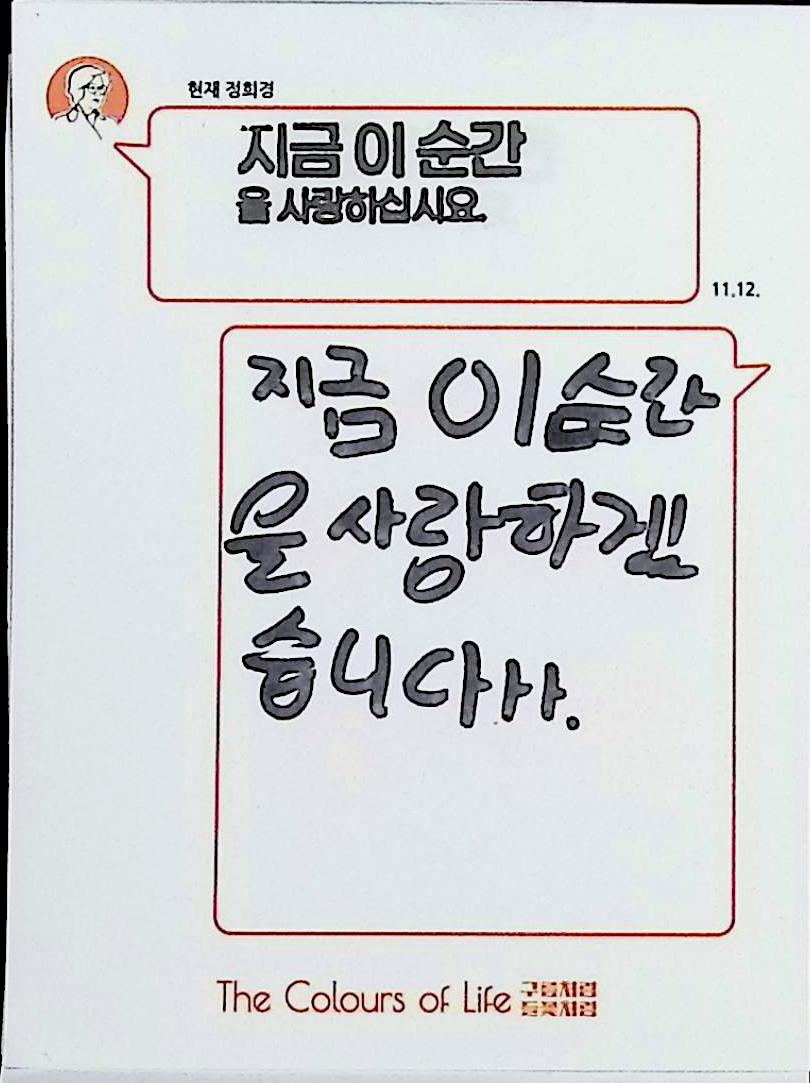 현재 정희경
지금 이 순간
을 사랑하십시요.
11.12.
지금 이 순간
을 사랑하겠
습니다ㅏㅏ.
The Colours of Life 구름처럼
들꽃처럼